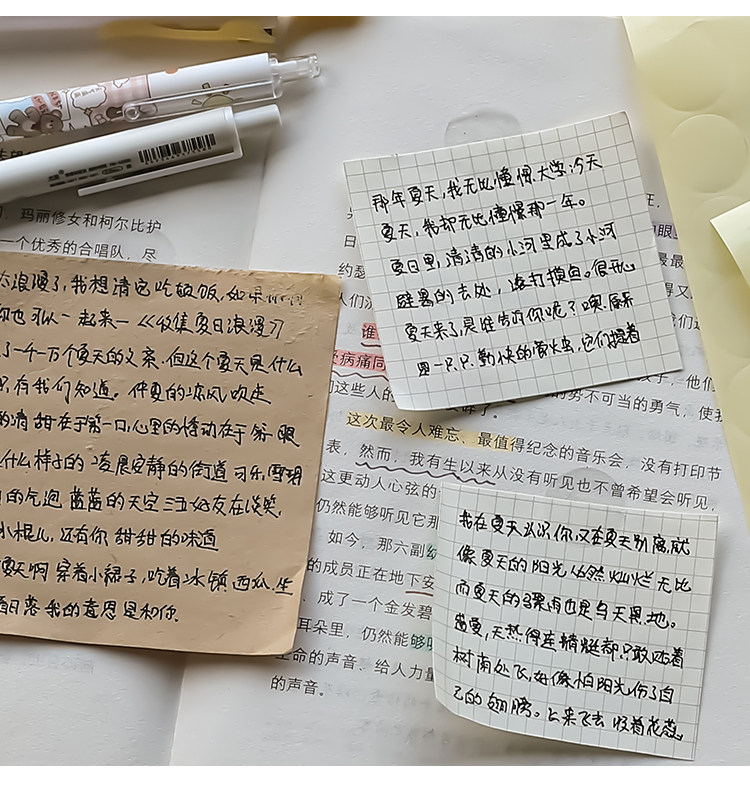 玛丽修女和柯尔比护
一个优秀的合唱队，尽
太浪漫了，我想请它吃顿饭，如果
你也可以一起来一《收集夏日浪漫》
了一个一万个夏天的文案，但这个夏天是什么
只有我们知道。仲夏的凉风吹走
的清甜在于第一口，心里的悸动在于第一眼
什么样子的凌晨安静的街道 可乐，雪碧
的气泡 蓝蓝的天空 三五好友在谈笑
小棍儿，还有你 甜甜的味道
夏天啊 穿着小裙子，吃着冰镇西瓜，坐
看日落 我的意思是和你
那年夏天，我无比憧憬大学；今天
夏天，我却无比憧憬那一年。
夏日里，清清的小河里成了小河
避暑的去处，
夏天来了，是谁告诉你呢？噢，原来
是一只只勤快的萤火虫，它们提着
我在夏天认识你，又在夏天别离，就
像夏天的阳光 仍然灿烂无比
而夏天的骤雨也是与天异地。
盛夏，天热得连蜻蜓都只敢贴着
树荫处飞，好像怕阳光伤了自
己的翅膀。
谁
病痛同
们这些人的
势不可当的勇气，使我
这次最令人难忘、最值得纪念的音乐会，没有打印节
表，然而，我有生以来从没有听见也不曾希望会听见，
这更动人心弦的
仍然能够听见它那
如今，那六副
的成员正在地下安
成了一个金发碧
耳朵里，仍然能够
生命的声音、给人力量
的声音。